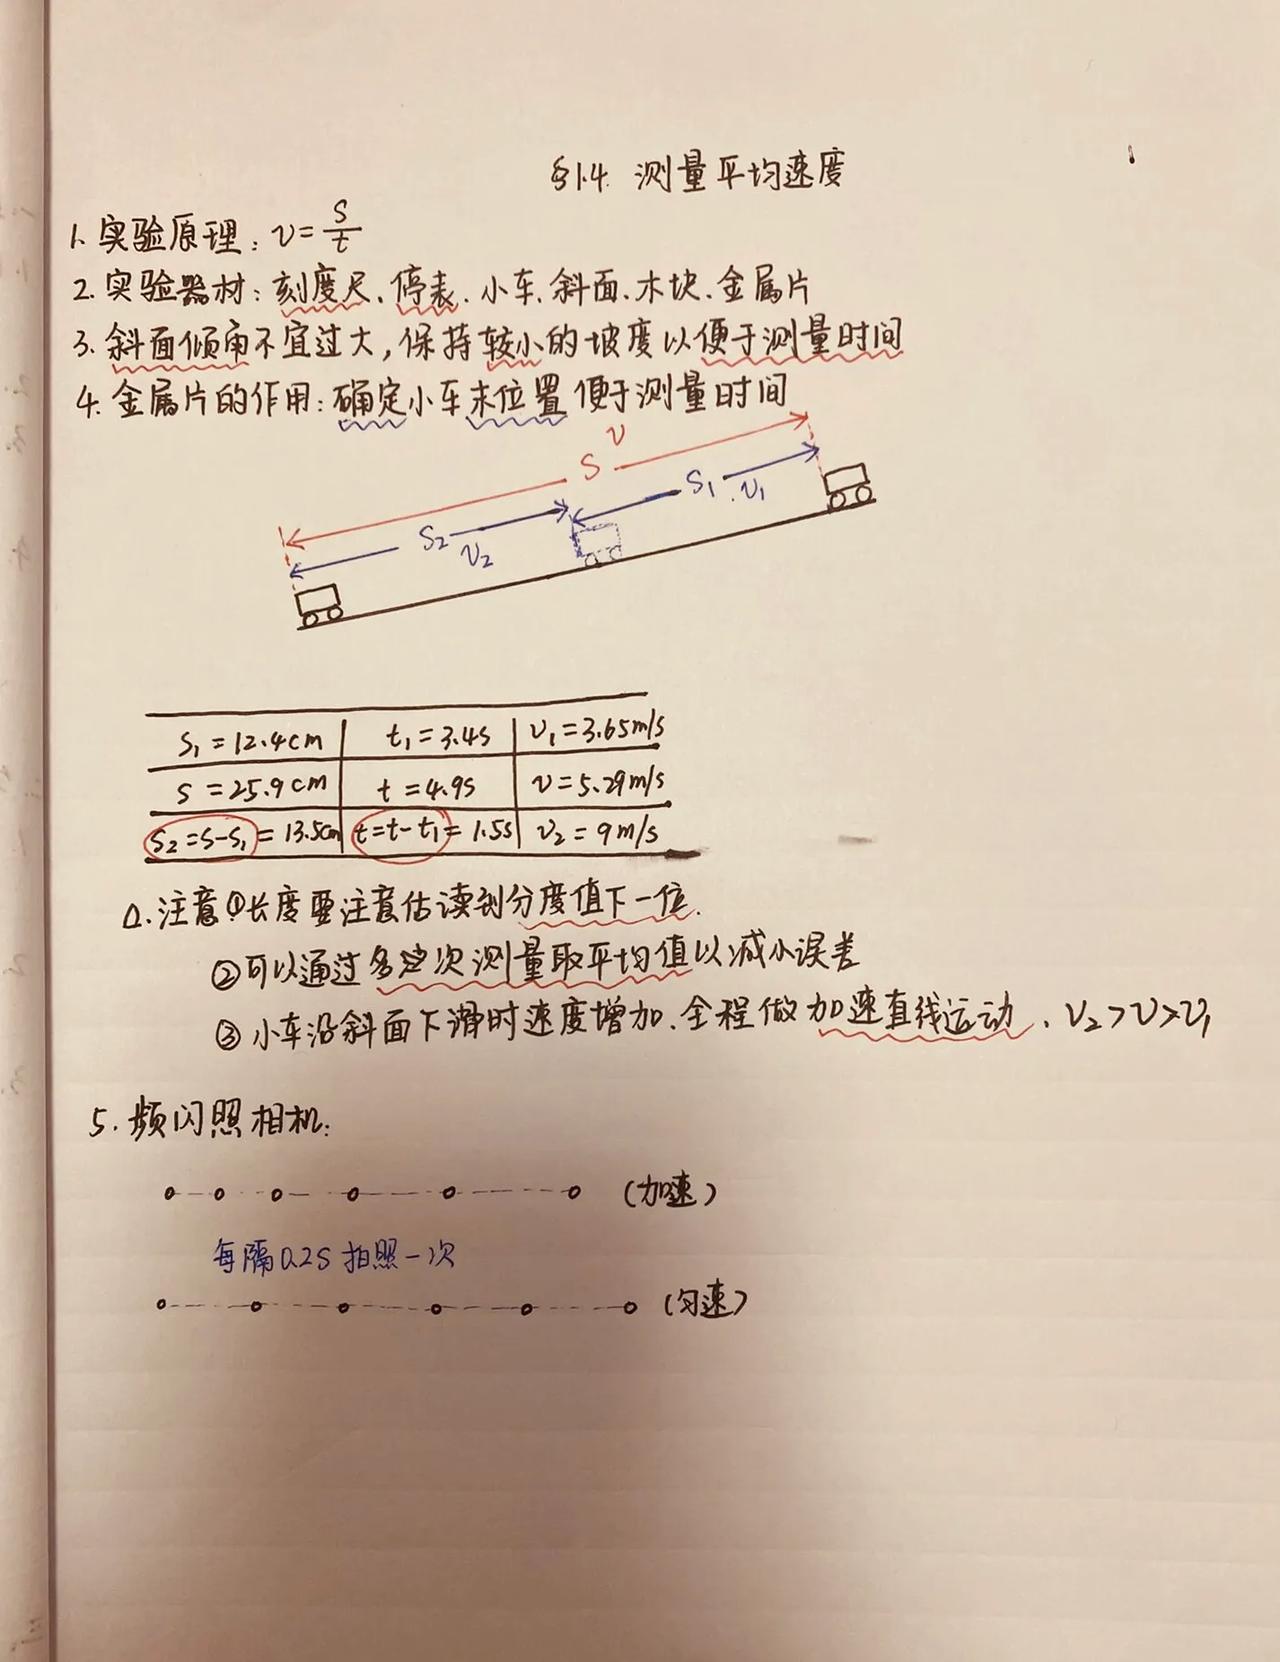 §1.4 测量平均速度
1. 实验原理：v=s/t
2. 实验器材：刻度尺、停表、小车、斜面、木块、金属片
3. 斜面倾角不宜过大，保持较小的坡度以便于测量时间
4. 金属片的作用：确定小车末位置 便于测量时间
v
S
S₁ v₁
S₂ v₂
S₁=12.4cm t₁=3.4s v₁=3.65m/s
S=25.9cm t=4.9s v=5.29m/s
S₂=S-S₁=13.5cm t=t-t₁=1.5s v₂=9m/s
△. 注意①长度要注意估读到分度值下一位.
②可以通过多次测量取平均值以减小误差
③小车沿斜面下滑时速度增加、全程做加速直线运动、v₂>v>v₁
5. 频闪照相机：
（加速）
每隔0.2s拍照一次
（匀速）